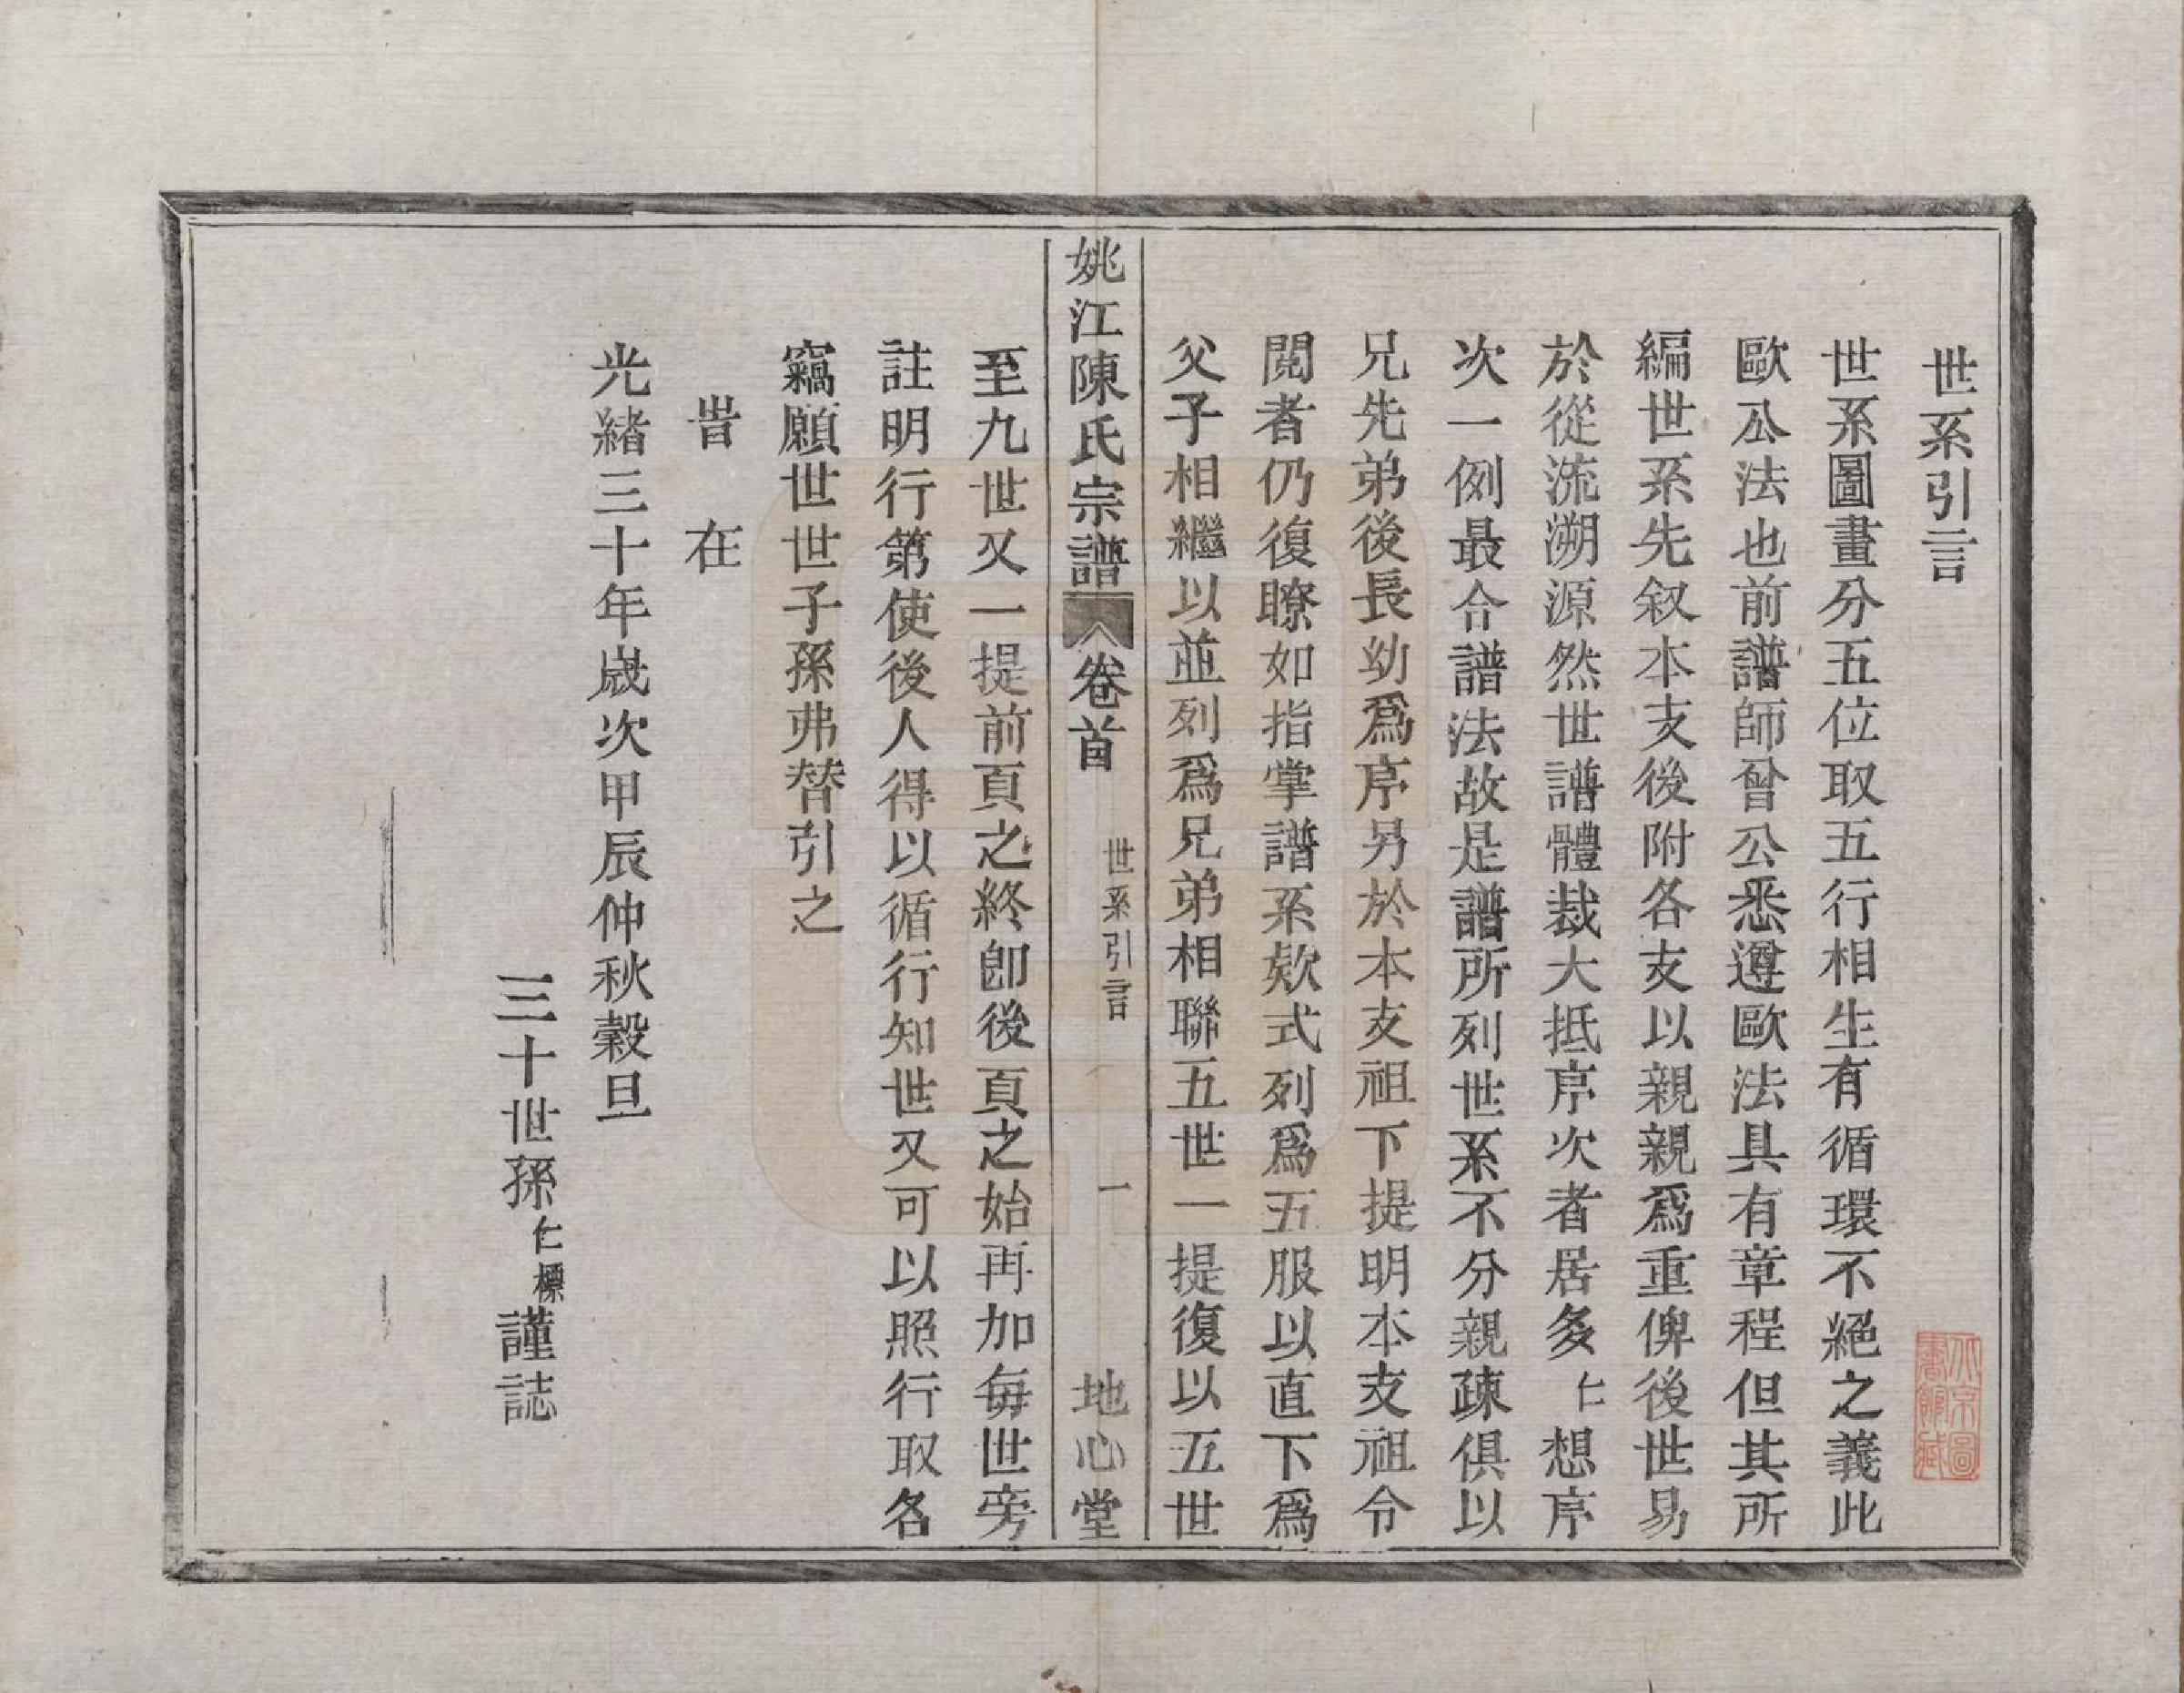 世系引言
世系圖畫分五位取五行相生有循環不絕之義此
歐公法也前譜師曾公悉遵歐法具有章程但其所
編世系先叙本支後附各支以親親爲重俾後世易
於從流溯源然世譜體裁大抵序次者居多仁想序
次一例最合譜法故是譜所列世系不分親疎俱以
兄先弟後長幼爲序另於本支祖下提明本支祖令
閱者仍復瞭如指掌譜系欵式列爲五服以直下爲
父子相繼以並列爲兄弟相聯五世一提復以五世
姚江陳氏宗譜 卷首 世系引言 一 地心堂
至九世又一提前頁之終卽後頁之始再加每世旁
註明行第使後人得以循行知世又可以照行取名
竊願世世子孫弗替引之
旹在
光緒三十年歲次甲辰仲秋穀旦
三十世孫仁標謹誌
北京圖書館藏